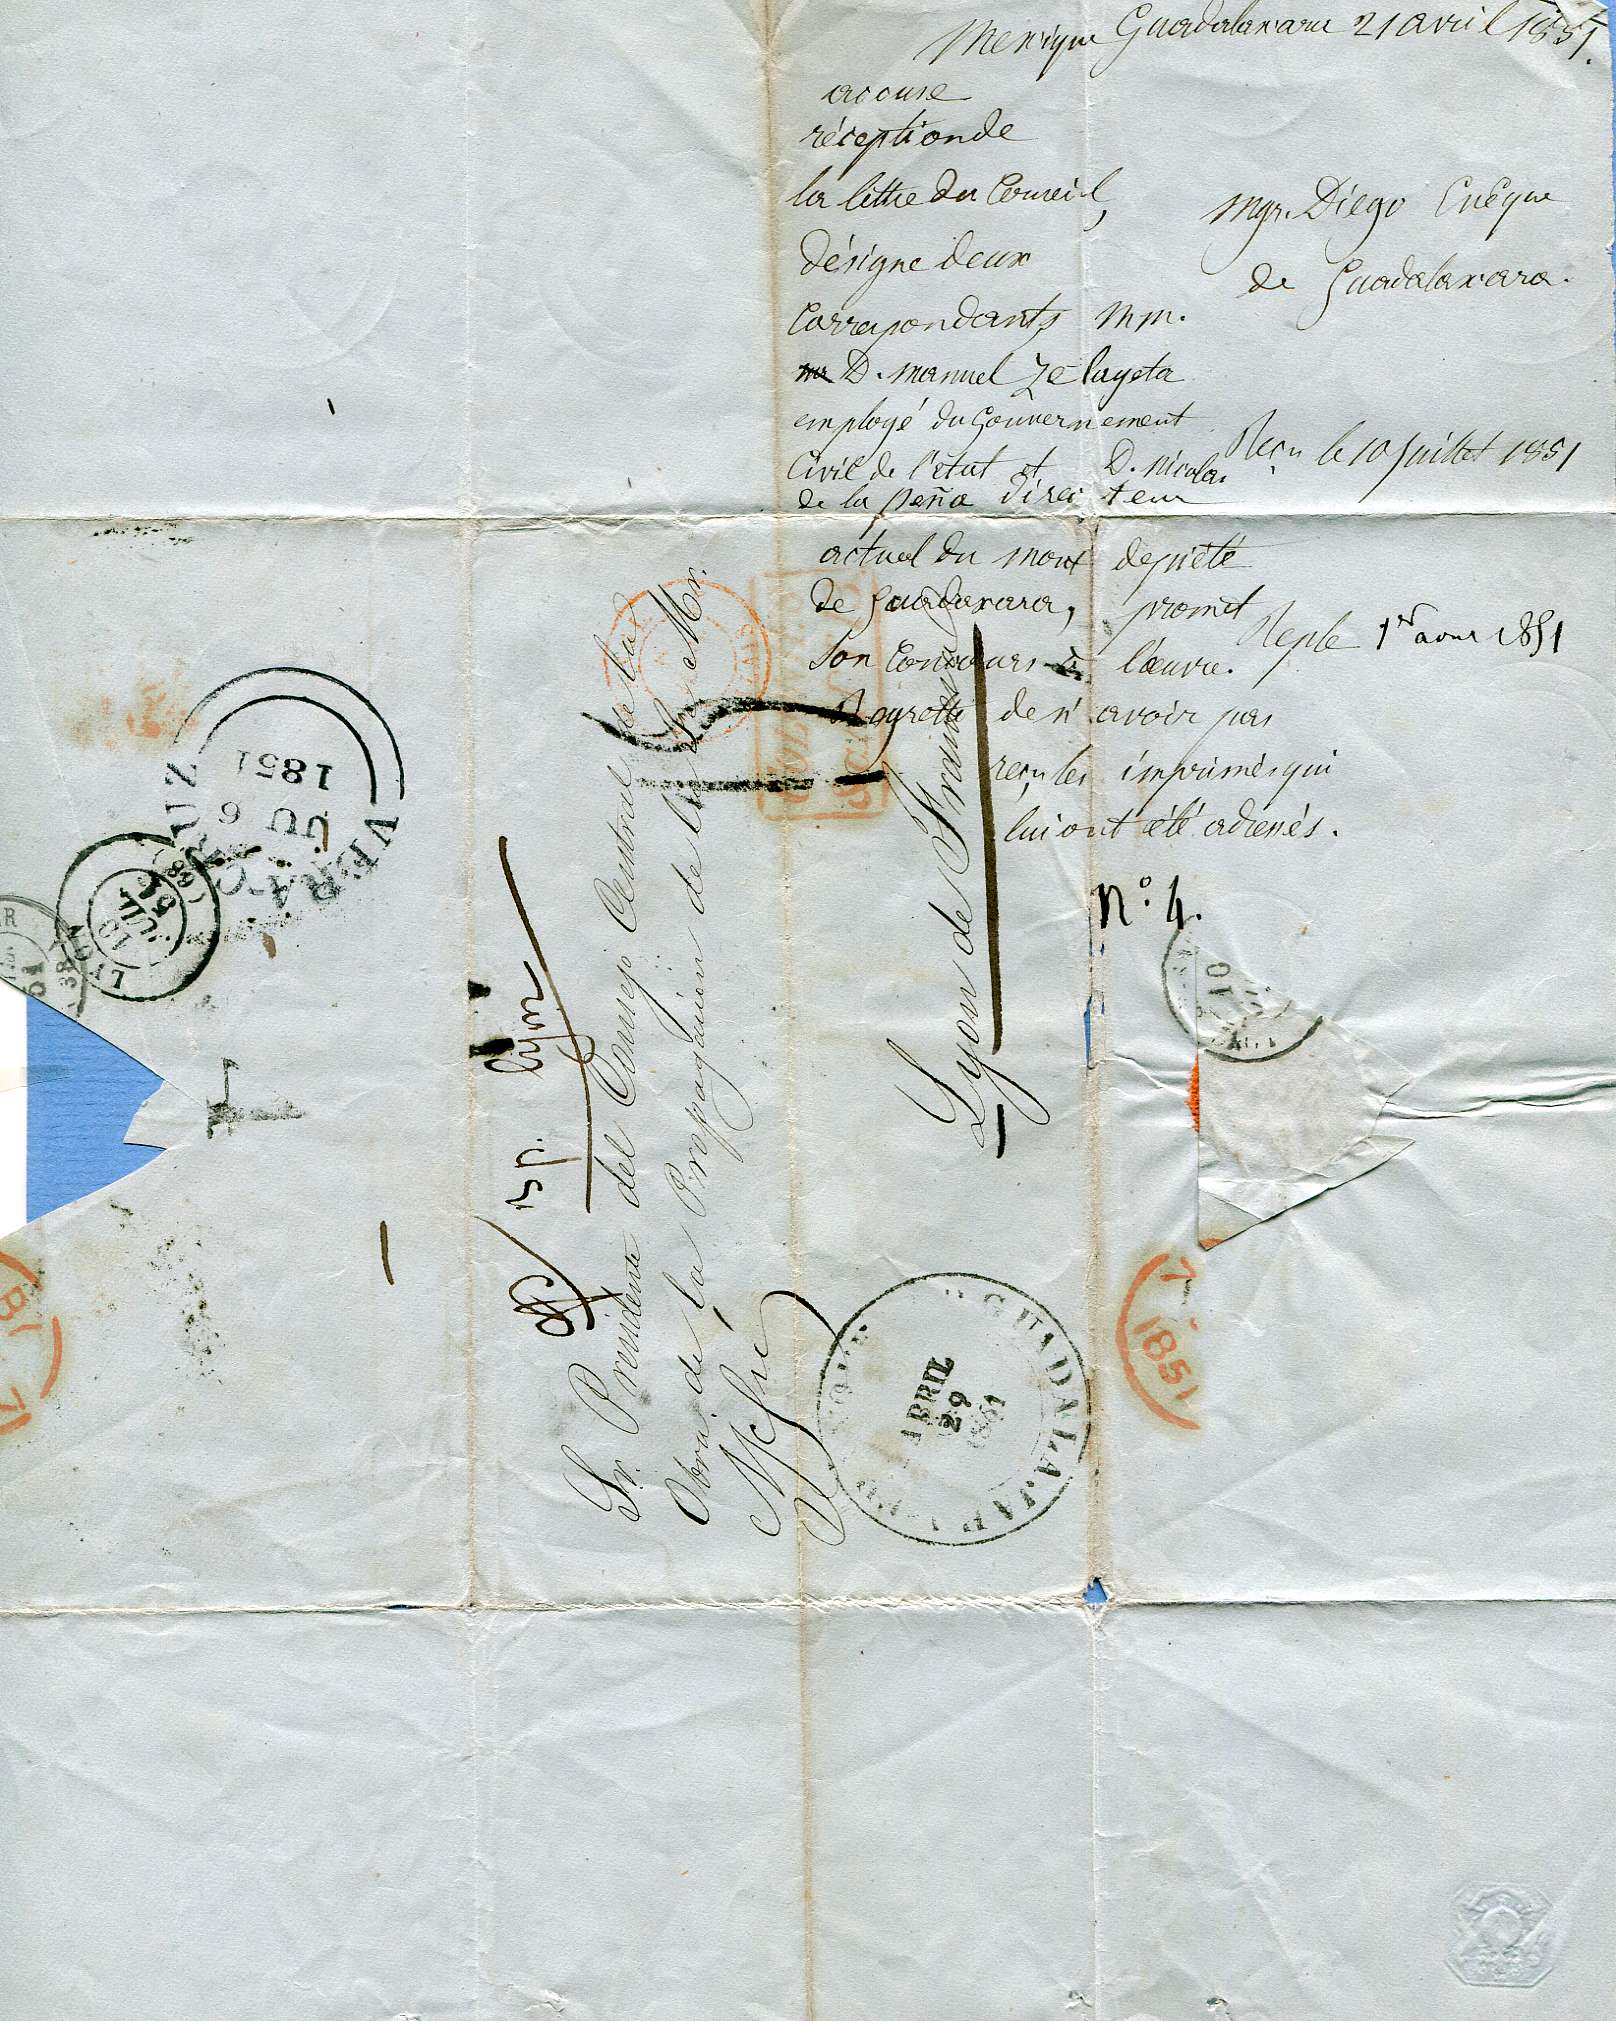 Mexique Guadalaxara 21 avril 1851.
accuse
réception de
la lettre du Conseil,
désigne deux
Correspondants MM.
D. Manuel Zelayeta
employé du Gouvernement
Civil de l'état et D. Nicolas
de la Peña directeur
actuel du mont de piété
de Guadaxara, promet
son concours à l'œuvre.
Regrette de n'avoir pas
reçu les imprimés qui
lui ont été adressés.
Mgr. Diego Evêque
de Guadalaxara.
Reçu le 10 Juillet 1851
1851
N.º 4.
Sr. Presidente del Consejo Central de la
Obra de la Propagacion de la Fe Mr.
Lyon de Francia
Lyon
VERACRUZ
JU 6
1851
LYON
10
JUIL
51
(68)
GUADALAJARA
ABRIL
29
1851
COLONIES
7
1851
10
1